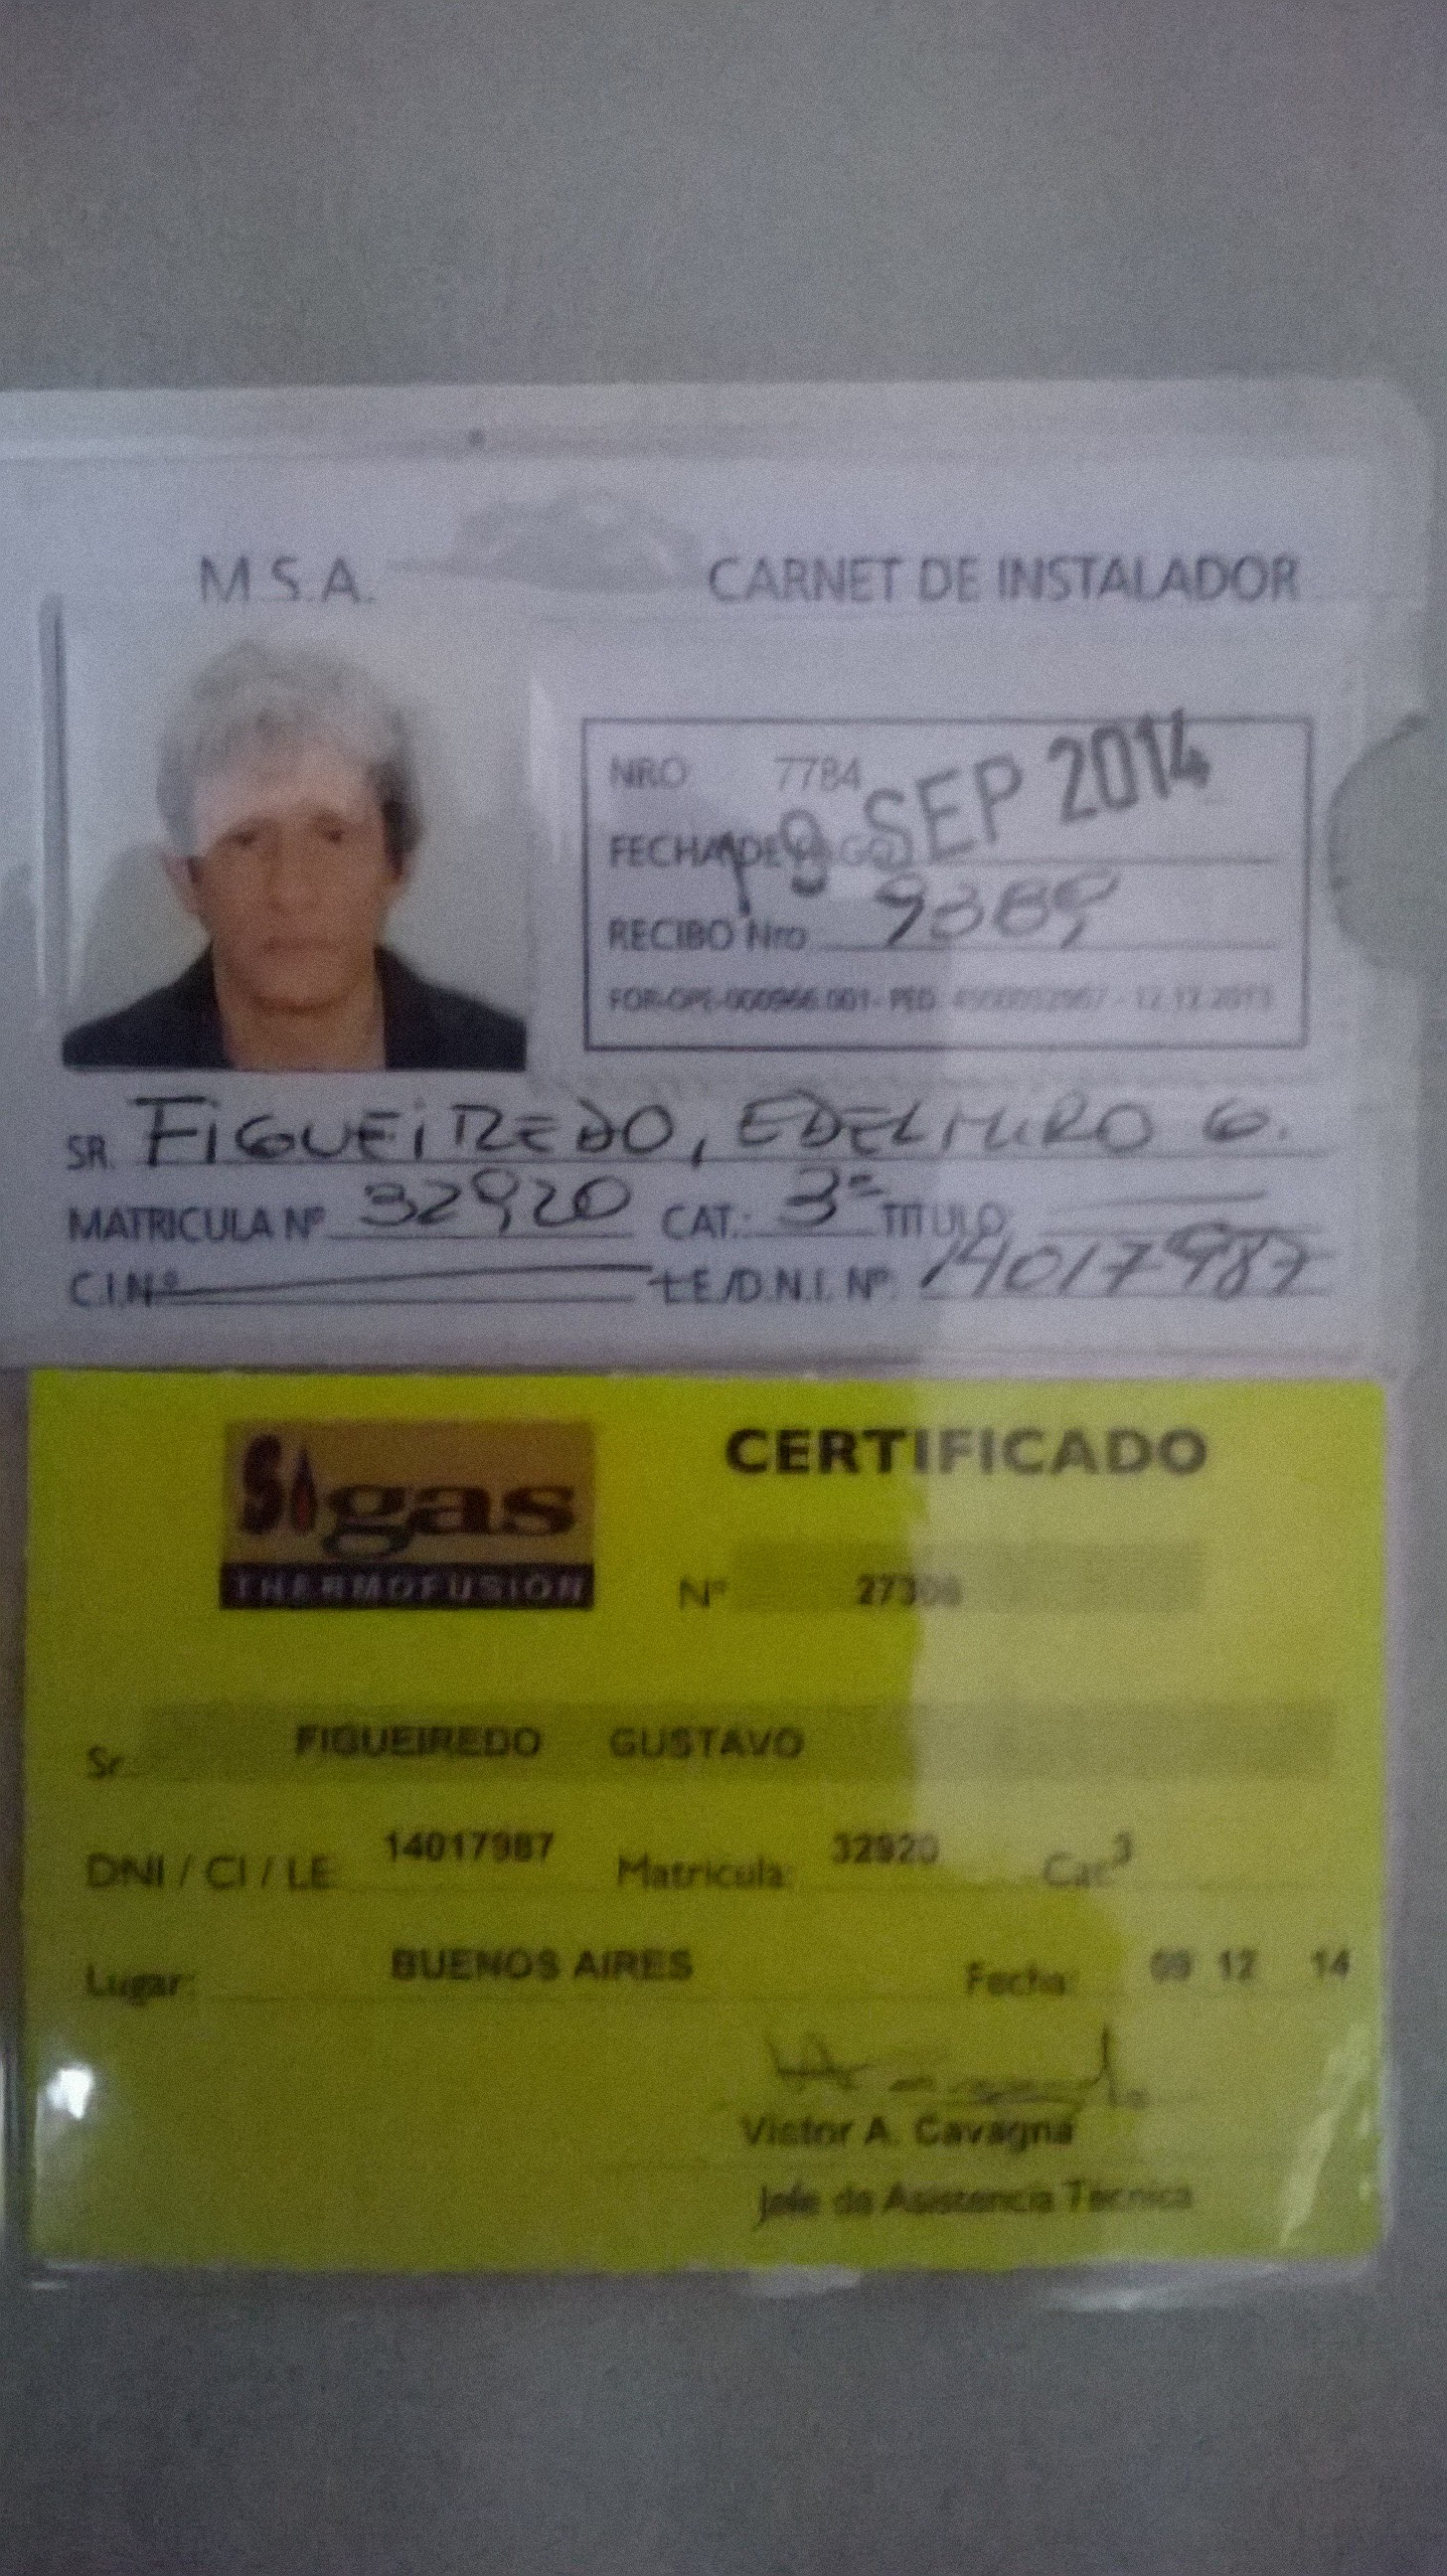 M.S.A. CARNET DE INSTALADOR
NRO: 7784
FECHA DE PAGO SEP 2014
RECIBO Nro
FOR-OPE-000966.001- PED. - 12.12.2013
SR. FIGUEIREDO, EDELMIRO G.
MATRICULA Nº 32920 CAT.: 3ª TITULO:
C.I.Nº L.E./D.N.I. Nº: 14017987
CERTIFICADO
Sigas
THERMOFUSION
Nº
Sr. FIGUEIREDO GUSTAVO
DNI / CI / LE: 14017987 Matrícula: 32920 Cat 3
Lugar: BUENOS AIRES Fecha: 09 12 14
Victor A. Cavagna
Jefe de Asistencia Técnica